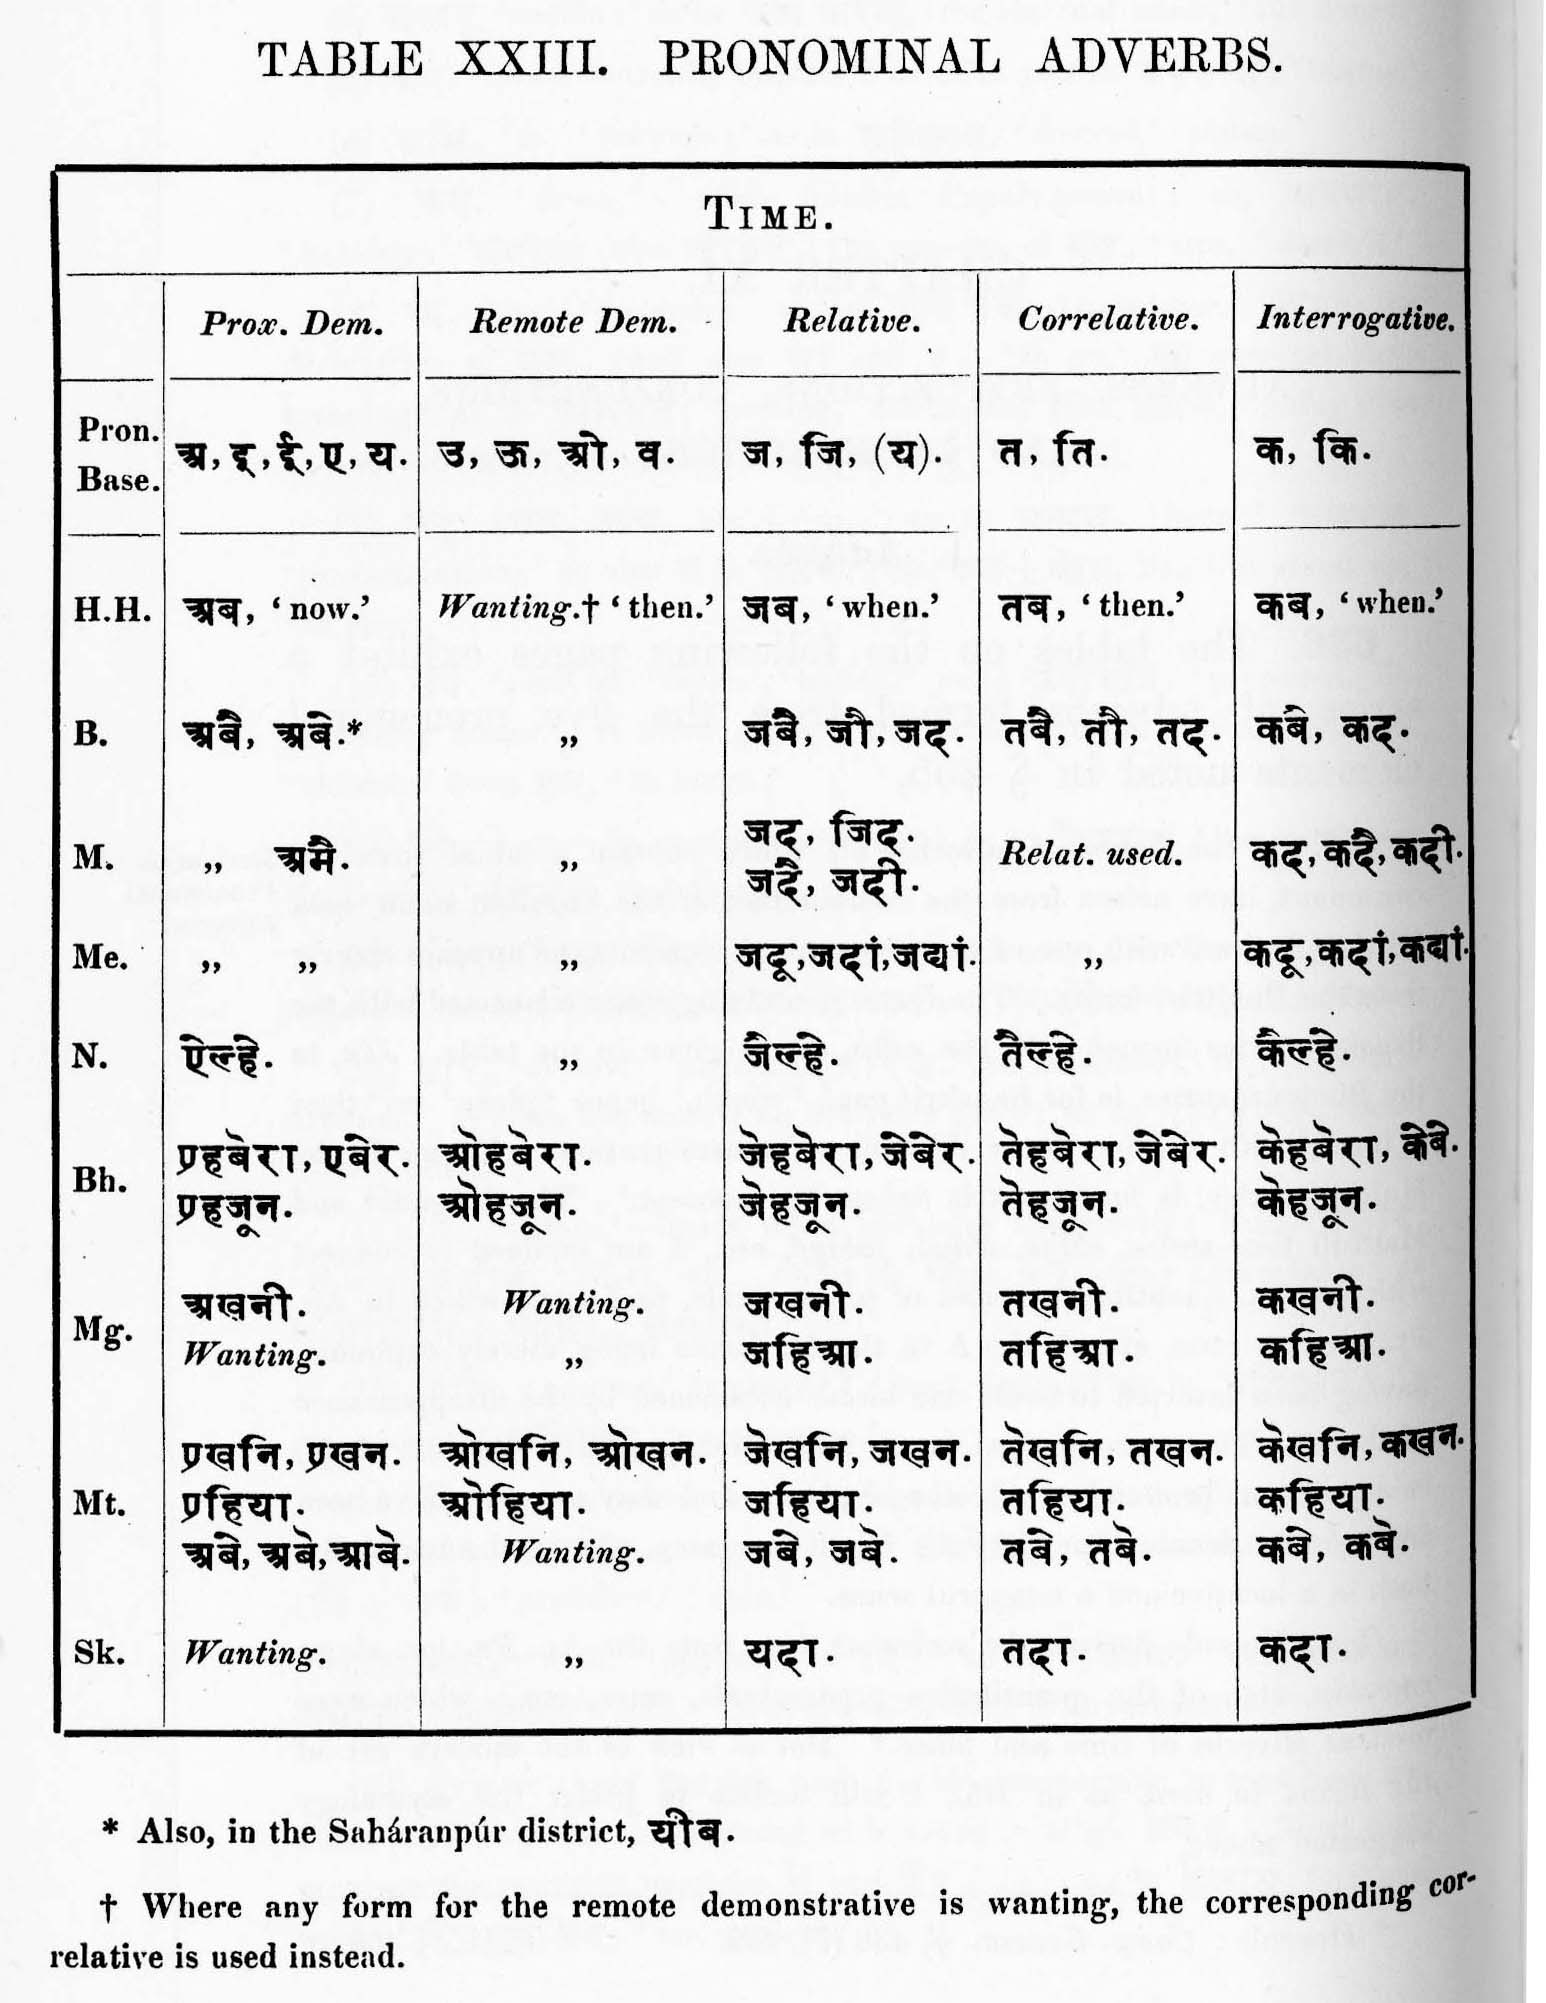 TABLE XXIII. PRONOMINAL ADVERBS.
TIME.
Prox. Dem. Remote Dem. Relative. Correlative. Interrogative.
Pron. Base. अ, इ, ई, ए, य. उ, ऊ, ओ, व. ज, जि, (य). त, ति. क, कि.
H.H. अब, ‘now.’ Wanting.† ‘then.’ जब, ‘when.’ तब, ‘then.’ कब, ‘when.’
B. अबै, अबे.* „ जबै, जौ, जद. तबै, तौ, तद. कबे, कद.
M. „ अमै. „ जद, जिद. Relat. used. कद, कदै, कदी.
जदै, जदी.
Me. „ „ „ जदू, जदां, जद्यां. „ कदू, कदां, कद्यां.
N. ऐल्हे. „ जैल्हे. तैल्हे. कैल्हे.
Bh. एहबेरा, एबेर. ओहबेरा. जेहबेरा, जेबेर. तेहबेरा, जेबेर. केहबेरा, केबे.
एहजून. ओहजून. जेहजून. तेहजून. केहजून.
Mg. अखनी. Wanting. जखनी. तखनी. कखनी.
Wanting. „ जहिआ. तहिआ. कहिआ.
Mt. एखनि, एखन. ओखनि, ओखन. जेखनि, जखन. तेखनि, तखन. केखनि, कखन.
एहिया. ओहिया. जहिया. तहिया. कहिया.
अबे, अबे, आबे. Wanting. जबे, जबे. तबे, तबे. कबे, कबे.
Sk. Wanting. „ यदा. तदा. कदा.
* Also, in the Saháranpúr district, यीब.
† Where any form for the remote demonstrative is wanting, the corresponding cor-
relative is used instead.